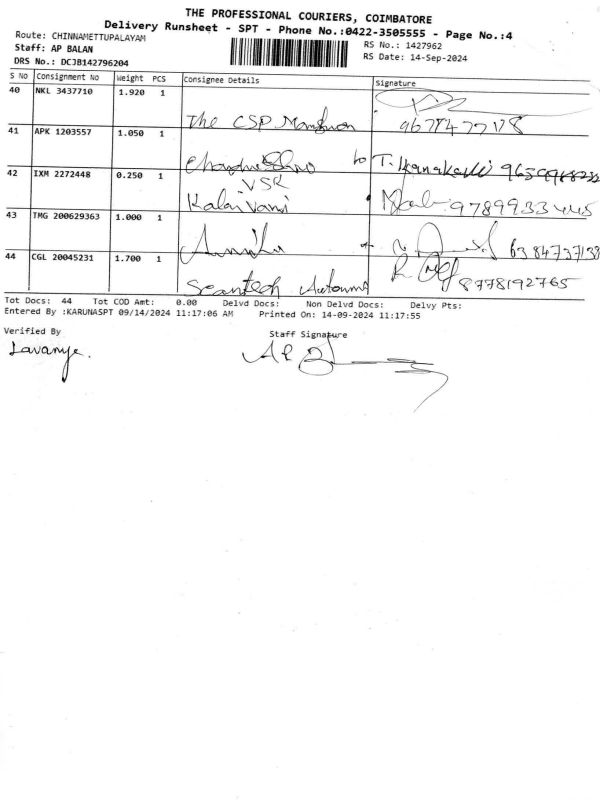 THE PROFESSIONAL COURIERS, COIMBATORE
Delivery Runsheet - SPT - Phone No.:0422-3505555 - Page No.:4
Route: CHINNAMETTUPALAYAM
RS No.: 1427962
Staff: AP BALAN
RS Date: 14-Sep-2024
DRS No.: DCJB142796204
S No Consignment No Weight PCS Consignee Details Signature
40 NKL 3437710 1.920 1
The CSP
41 APK 1203557 1.050 1
to T.
42 IXM 2272448 0.250 1
VSR
Kalai Vani 9789933445
43 TMG 200629363 1.000 1
44 CGL 20045231 1.700 1
8778192765
Tot Docs: 44 Tot COD Amt: 0.00 Delvd Docs: Non Delvd Docs: Delvy Pts:
Entered By :KARUNASPT 09/14/2024 11:17:06 AM Printed On: 14-09-2024 11:17:55
Verified By Staff Signature